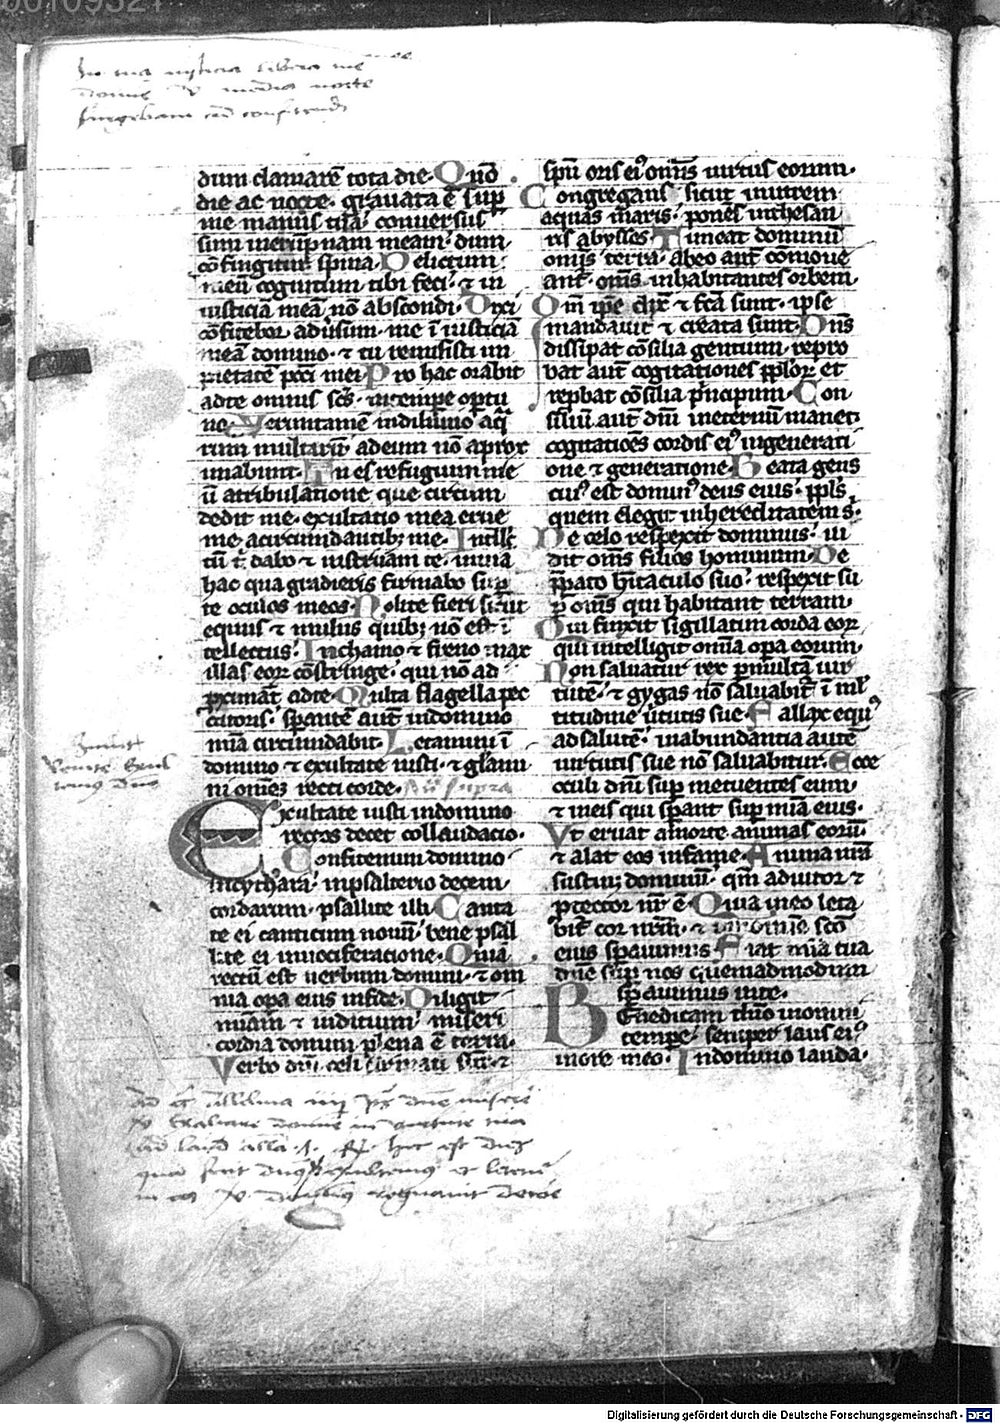 00109321
In tua iusticia libera me
domine V media nocte
surgebam ad confitendum
dum clamarē tota die. Qm̄
die ac nocte. gravata ē sup
me manus tua conversus
sum in erūpnam meam. dum
cōfingitur spina. Delictum
meū cognitum tibi feci. ⁊ in
iusticiā meā nō abscondi. Dixi
cōfitebor adūsum. me ī iusticiā
meā domino. ⁊ tu remisisti im
pietatē pcci mei. Pro hac orabit
adte omnis scs̄. intempe oportu
no. Verumtamē indiluuio aq̄
rum multarū adeum nō aprox
imabunt. Tu es refugium me
ū atribulatione que circum
dedit me. exultatio mea erue
me acircumdantibȝ me. Intell̄c
tū t̄ dabo ⁊ instruam te. inuia
hac qua gradieris firmabo sup
te oculos meos. Nolite fieri sicut
equus ⁊ mulus quibȝ nō est ī
tellectus. Inchamo ⁊ freno max
illas eorū cōstringe. qui nō ad
proximāt adte. Multa flagella pec
catoris. spantē autē indomino
mīa circumdabit. Letamini ī
domino ⁊ exultate iusti. ⁊ gloriami
ni omēs recti corde.
Exultate iusti indomino
rectos decet collaudacio.
Confitemini domino
incythara. inpsalterio decem
cordarum. psallite illi. Canta
te ei canticum nouū. bene psal
lite ei inuociferatione. Quia
rectū est uerbum domini. ⁊ om
nia opa eius infide. Diligit
miam ⁊ iudicium. miseri
cordia domini plena ē terra.
Verbo dnī celi firmati sūt. ⁊
spū oris eiꝰ omīs uirtus eorum.
Congregans sicut inutrem
aquas maris. ponēs inthesau
ris abyssos. Timeat dominū
omīs terra. abeo aut cōmoue
ant. omīs inhabitantes orbem.
Qm̄ ipse dix̄ ⁊ fca sunt. ipse
mandauit ⁊ creata sunt. Dn̄s
dissipat cōsilia gentium. repro
bat aut cogitationes pplor̄ et
repbat cōsilia principum. Con
siliū aut dnī ineternū manet.
cogitatiōes cordis eiꝰ ingenerati
one ⁊ generatione. Beata gens
cuiꝰ est dominꝰ deus eius. ppls
quem elegit inhereditatem s.
De celo respexit dominus. ui
dit oms filios hominum. De
pparato hitaculo suo. respexit su
p oms qui habitant terram.
Qui finxit sigillatim corda eor̄
qui intelligit omīa opa eorum.
Non saluatur rex p multā uir
tutē. ⁊ gygas nō saluabitꝰ ī ml̄
titudine uirtutis sue. Fallax equꝰ
ad salutē. inabundantia autē
uirtutis sue nō saluabitur. Ecce
oculi dnī sup metuentes eum.
⁊ ineis qui spant sup mīa eius.
Vt eruat amorte animas eorū.
⁊ alat eos infame. Anima nrā
sustinȝ dominū. qm̄ adiutor ⁊
ptector nr̄ ē. Quia ineo leta
bit cor nrm. ⁊ in nomīe scō
eius spauimus. Fiat mīa tua
dne sup nos quemadmodum
spauimus inte.
Benedicam dnō inomni
tempe. semper laus eiꝰ
inore meo. Indomino lauda.
Venite exul
temus Dno
V Exaltare domine in virtute tua
hic est dies
Digitalisierung gefördert durch die Deutsche Forschungsgemeinschaft - DFG